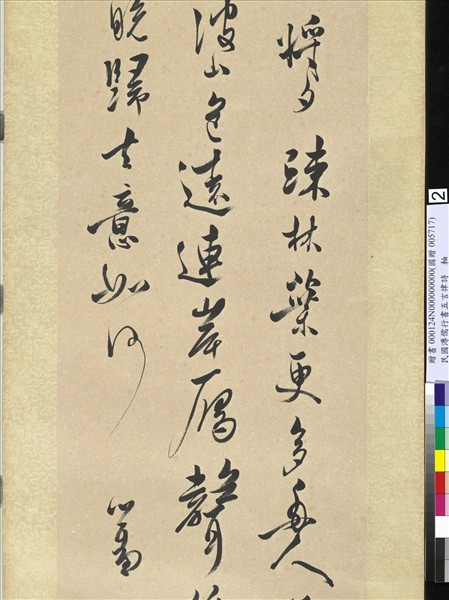 將夕疎林葉更多無人
波山色遠連岸雁聲
晚歸去意如何 心畬
2
贈書 000124N000000000(國贈 005717)
民國溥儒行書五言律詩 軸